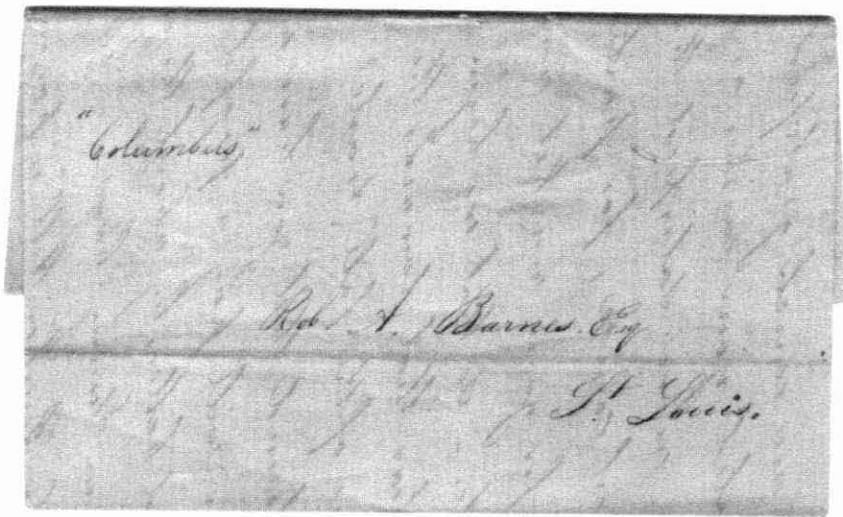 "Columbus"
Rob A. Barnes. Esq
St. Louis.